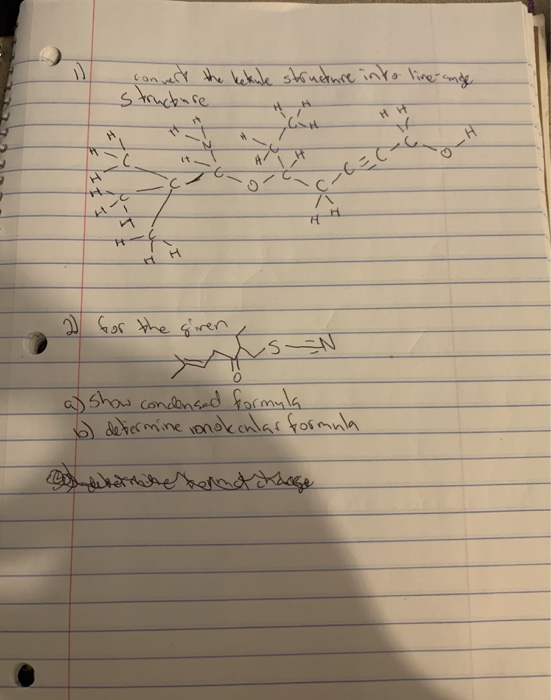 1) convert the kekule structure into line-angle
structure
H H H H H
H N C H H H C H
H C H C H H C C≡C O
H C C C O C C
H H H H
H C
H H
2) for the given
S ≡N
O
a) show condensed formula
b) determine molecular formula